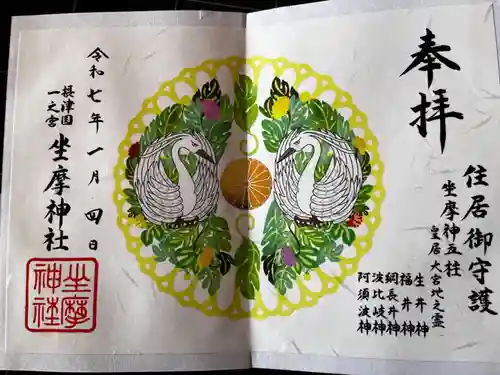 奉拝
住居御守護
坐摩神五柱
皇居 大宮地之霊
生井神
福井神
綱長井神
波比岐神
阿須波神
令和七年一月四日
摂津国
一之宮
坐摩神社
坐摩
神社